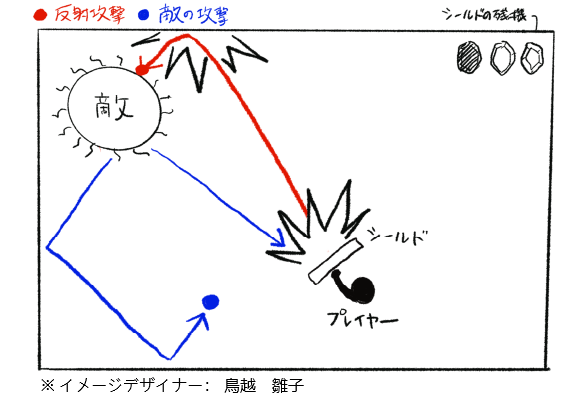 ● 反射攻撃 ● 敵の攻撃
シールドの残機
敵
シールド
プレイヤー
※イメージデザイナー： 鳥越 雛子